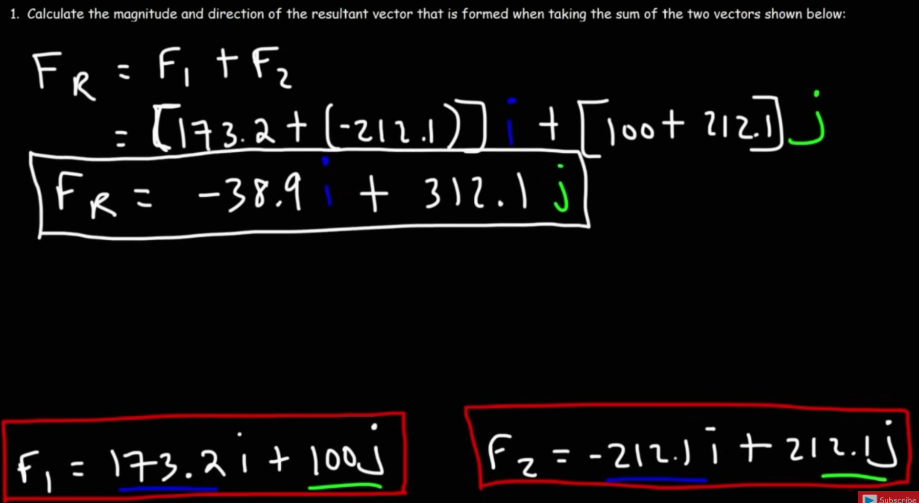 1. Calculate the magnitude and direction of the resultant vector that is formed when taking the sum of the two vectors shown below:
F_R = F_1 + F_2
= [173.2 + (-212.1)] i + [100 + 212.1] j
F_R = -38.9 i + 312.1 j
F_1 = 173.2 i + 100 j
F_2 = -212.1 i + 212.1 j
Subscribe